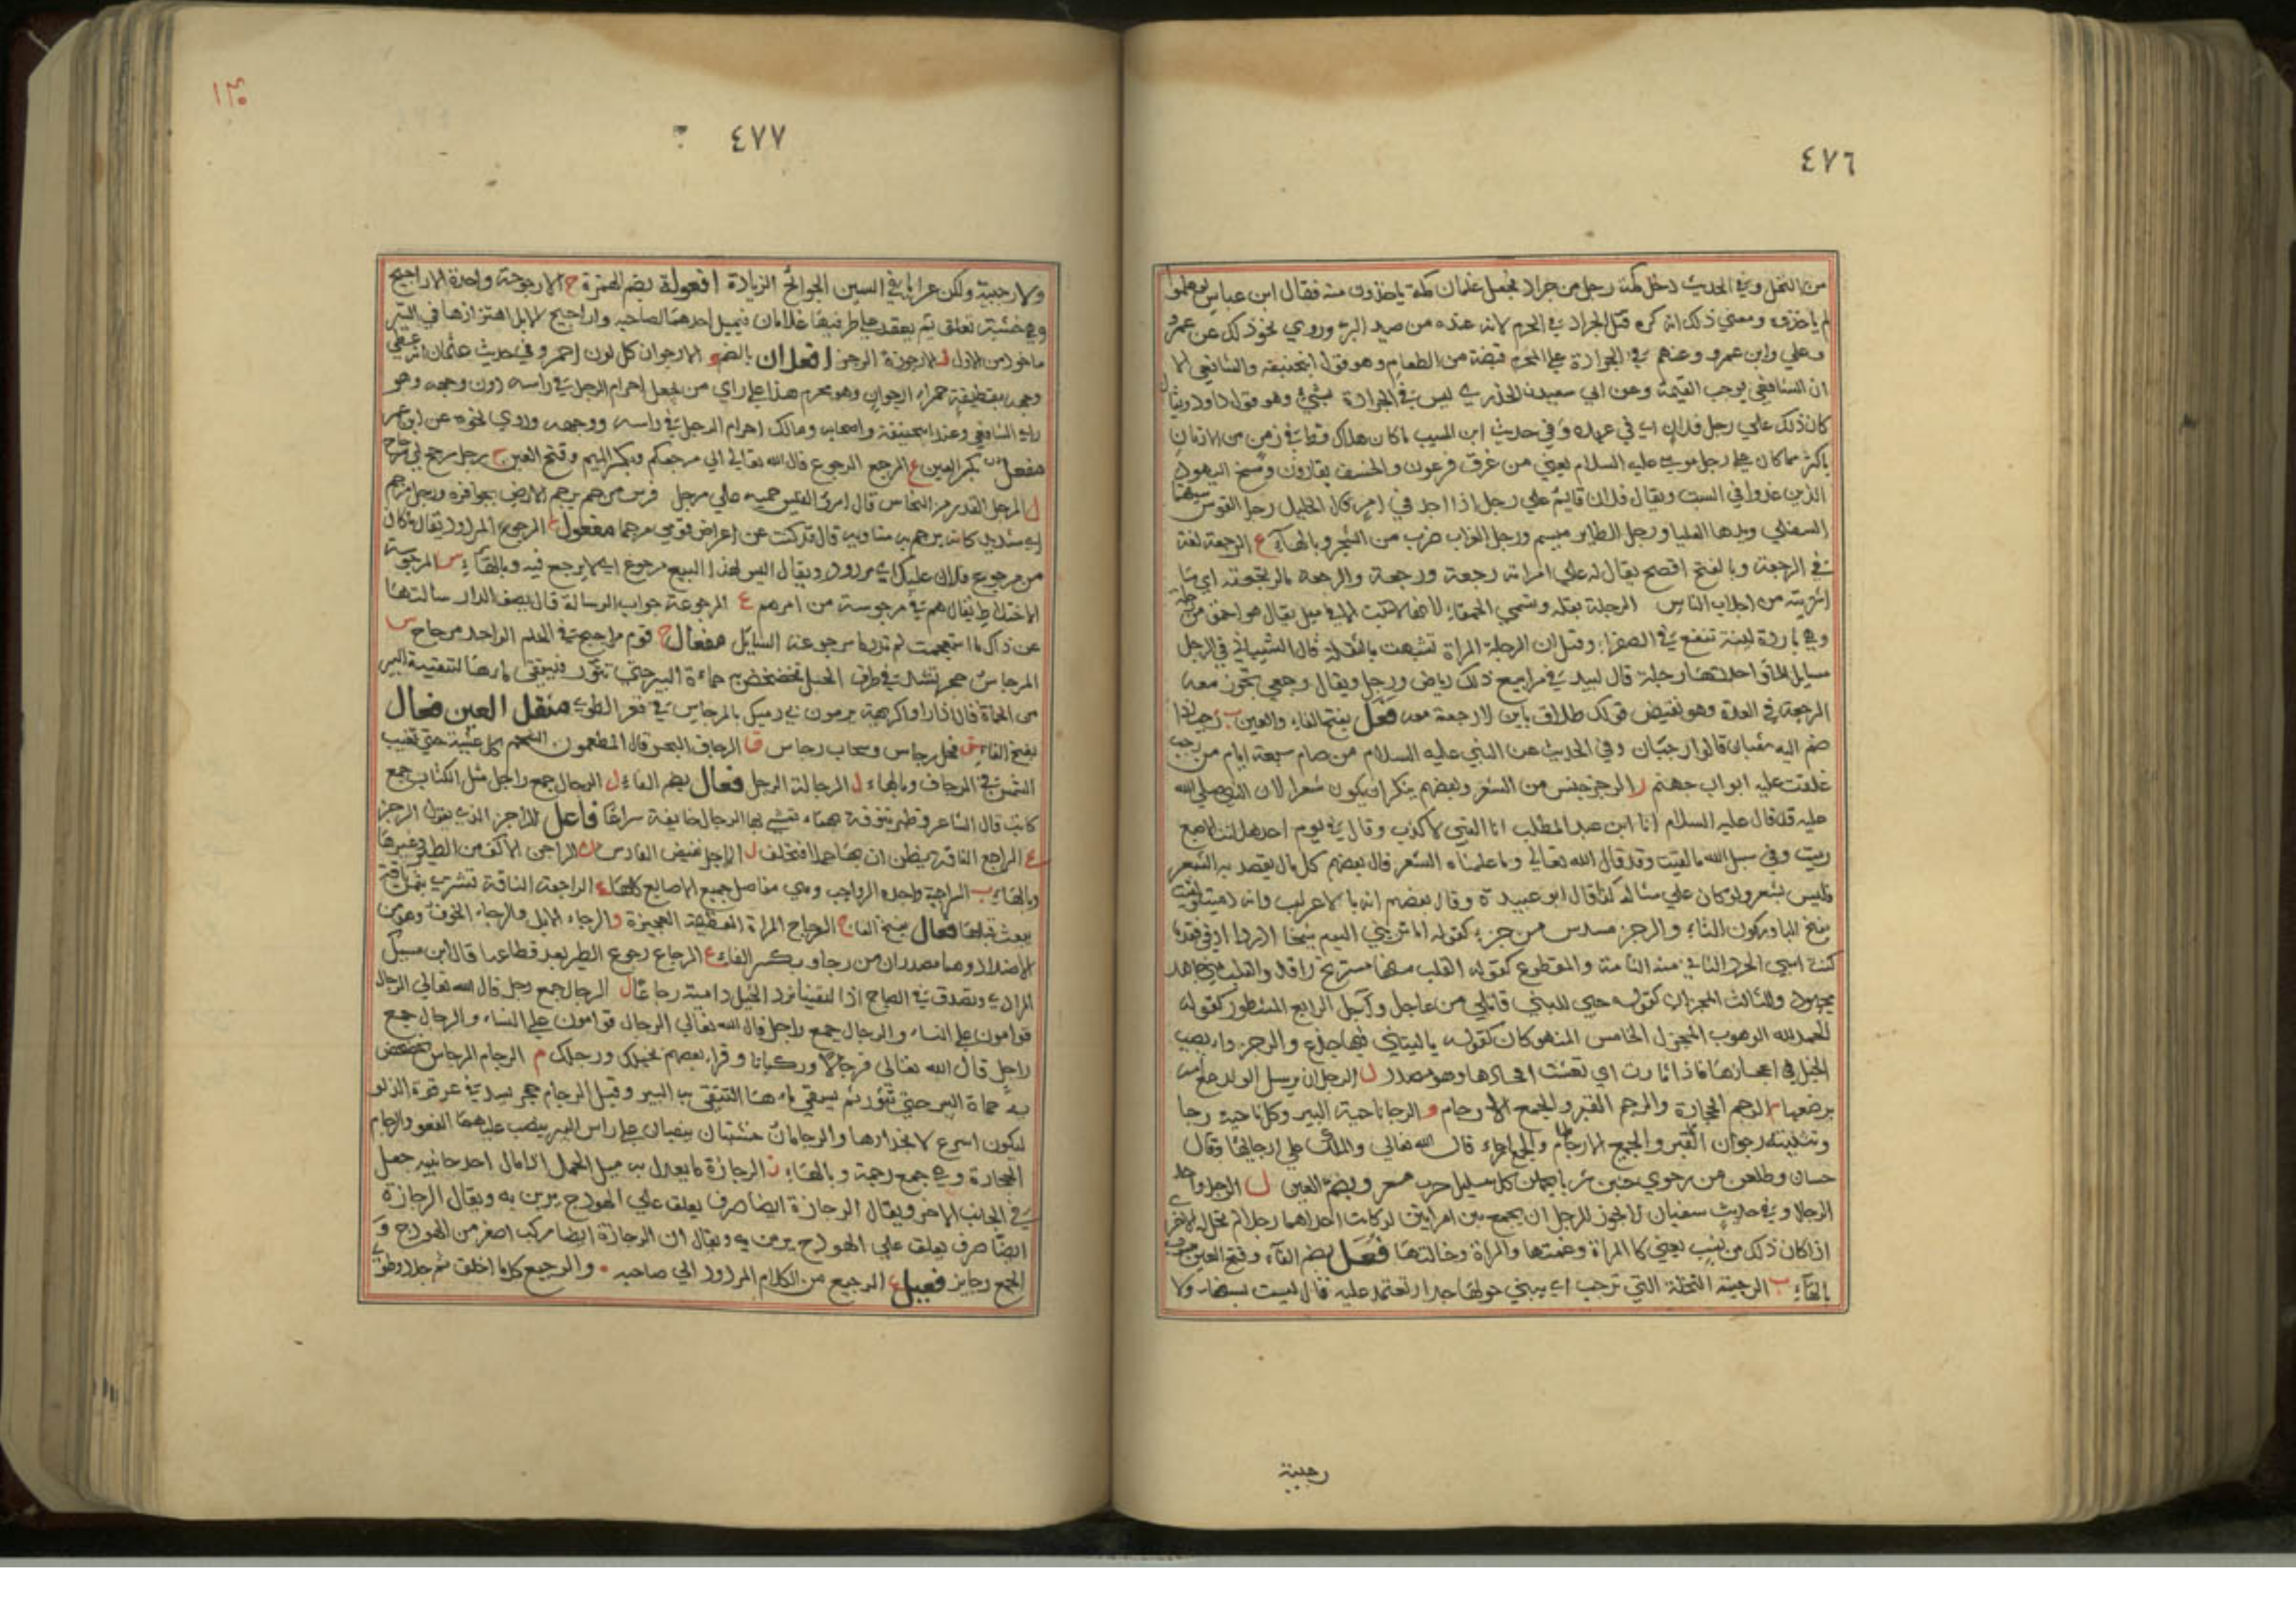 ٤٧٦
من النمل وفي الحديث دخل مكة رجل من جراد فجعل غلمان مكة ياخذون منه فقال ابن عباس لو علموا
لم ياخذوه ومعني ذلك انه كره قتل الجراد في الحرم لانه عنده من صيد البر وروي نحو ذلك عن عمر
وعلي وابن عمرو وعنهم في الجرادة علي المحرم قبضة من الطعام وهو قول ابي حنيفة والشافعي الا
ان الشافعي يوجب القيمة وعن ابي سعيد الخدري ليس في الجرادة شيئ وهو قول داود ويقال
كان ذلك علي رجل فلان اي في عهده وفي حديث ابن المسيب ما كان هلاك قط في زمن من الازمان
باكثر مما كان علي رجل موسي عليه السلام يعني من غرق فرعون والخسف بقارون ومسخ اليهود
الذين عدوا في السبت ويقال فلان قايم علي رجل اذا اجد في امر قال الخليل رجل القوس سيتها
السفلي ويدها العليا ورجل الطاير ميسم ورجل الغراب ضرب من الشجر وبالهاء ع الرجعة لغة
في الرجعة وبالفتح افصح يقال له علي امراته رجعة ورجعة والرجعة ما ارتجعته اي ما
اشتريته من اجلاب الناس الرجلة بقلة وتسمي الحمقاء لانها لا تنبت الا في مسيل يقال هو احمق من رجلة
وهي باردة لينة تنفع في الصفراء وقيل ان الرجلة المراة تشبهت بالبقلة قال الشيباني في الرجل
مسايل الماء واحدتها رجلة قال لبيد في مرابيع ذلك رياض ورجل ويقال رجعي تجوز معه
الرجعة في العدة وهو نقيض قولك طلاق باين لا رجعة معه فَعَل بفتح الفاء والعين ب رجب اذا
ضم اليه شعبان قالوا رجبان وفي الحديث عن النبي عليه السلام من صام سبعة ايام من رجب
غلقت عليه ابواب جهنم ز الرجز جنس من الشعر وبعضهم ينكر ان يكون شعرا لان النبي صلي الله
عليه قد قال عليه السلام انا ابن عبد المطلب انا النبي لا كذب وقال في يوم احد هل انت الا اصبع
دميت وفي سبيل الله ما لقيت وقد قال الله تعالي وما علمناه الشعر قال بعضهم كل ما لم يقصد به الشعر
فليس بشعر ولو كان علي مثاله كذا قال ابو عبيدة وقال بعضهم انه بالاعراب وانه
كنت امسي الحد الثاني منه الثامنة والمقطوع كقوله القلب منها مستريح راقد والقلب مني جاهد
مجهود والثالث المجزو كقوله حي لليني قاتلي من عاجل وآجل الرابع المشطور كقوله
الحمد لله الوهوب المجزل الخامس المنهوك كقوله يا ليتني فيها جذع والرجز داء يصيب
الخيل في اعجازها فاذا ثارت اي نهضت افخاذها وهو مصدر ل الرجل ان يرسل الولد مع امه
يرضعها م الرجم الحجارة والرجم القبر والجمع الارجام و الرجا ناحية البير وكل ناحية رجا
وتثنيته رجوان القبر والجمع الارجاء قال الله تعالي والملك علي ارجائها وقال
حسان وطلعن من رجوي كل سبيل حرب وبضم العين ل الرجل واحد
الرجال وفي حديث سفيان لا يجوز للرجل ان يجمع بين امراتين لو كانت احداهما رجلا لم تحل له الاخري
اذا كان ذلك من نسب يعني كالمراة وعمتها والمراة وخالتها فُعَل بضم الفاء وفتح العين
بالهاء ب الرجبة النخلة التي ترجب اي يبني حولها جدار تعتمد عليه قال ليست بسنهاء ولا
رجبية
٤٧٧
ولا رجبية ولكن عرايا في السين الجوائح الزيادة افعولة بضم الهمزة ح الارجوحة واحدة الاراجيح
وهي خشبة تعلق ثم يقعد علي طرفيها غلامان فيميل احدهما لصاحبه واراجيح الابل اهتزازها في السير
ماخوذ من الاول ز الارجوزة الرجز افعلان بالضم و الارجوان كل لون احمر وفي حديث عثمان انه غطي
وجهه بقطيفة حمراء ارجوان وهو محرم هذا علي راي من يجعل احرام الرجل في راسه دون وجهه وهو
راي الشافعي وعند ابي حنيفة واصحابه ومالك احرام الرجل في راسه ووجهه وروي نحوه عن ابن عمر
مفعل بكسر العين ع المرجع الرجوع قال الله تعالي الي مرجعكم وبكسر الميم وفتح العين
ل المرجل القدر من النحاس قال امرئ القيس حميه غلي مرجل م فرس مرجم يرجم الارض بحوافره ورجل مرجم
اي شديد كانه يرجم به معاديه قال قد كنت عن اعراض قومي مرجما مفعول ع الرجوع المردود يقال ما كان
من مرجوع فلان عليك اي مردود ويقال ليس لهذا البيع مرجوع اي لا يرجع فيه وبالهاء س المرجوسة
الاختلاط يقال هم في مرجوسة من امرهم ع المرجوعة جواب الرسالة قال يصف الدار سالتها
عن ذاك فاستعجمت لم تدر ما مرجوعة السايل مفعال ح قوم مراجيح في الحلم الواحد مرجاح س
المرجاس حجر يشد في طرف الحبل تخضخض به حماءة البير حتي تثور فيستقي ماءها لتنقية البير
من الحماة قال اذا راوا كريهة يرمون بي رميك بالمرجاس في قعر الطوي مثقل العين فعال
بفتح الفاء س فحل رجاس وسحاب رجاس ف الرجاف البحر قال المطعمون الشحم كل عشية حتي تغيب
الشمس في الرجاف وبالهاء ل الرجالة الرجل فُعّال بضم الفاء ل الرجال جمع راجل مثل الكتاب جمع
كاتب قال الشاعر وظهر تنوفة يهماء تمشي بها الرجال خايفة سراعا فاعل ز الراجز الذي يقول الرجز
ع الراجع الناقة يظن ان بها حملا فتخلف ل الراجل نقيض الفارس ن الراجن الآلف من الطير وغيرها
وبالهاء ب الراجبة واحدة الرواجب وهي مفاصل جميع الاصابع كلها ع الراجعة الناقة تشتري بثمن ناقة
بيعت قبلها فعال بفتح الفاء ح الرجاح المراة العظيمة العجيزة و الرجاء الامل والرجاء الخوف وهو من
الاضداد وهما مصدران من رجا وبكسر الفاء ع الرجاع رجوع الطير بعد قطاعها قال ابن مسبك
المرادي ونصدق في الصباح اذا التقينا نرد الخيل دامية رجاعا ل الرجال جمع رجل قال الله تعالي الرجال
قوامون علي النساء والرجال جمع راجل قال الله تعالي الرجال قوامون علي النساء والرجال جمع
راجل قال الله تعالي فرجالا وركبانا وقراء بعضهم بخيلك ورجلك م الرجام المرجاس
به حماة البير حتي تثور ثم يستقي ماءها لتنقي به البير وقيل الرجام حجر يشد في عرقوة الدلو
ليكون اسرع لانحدارها والرجامان خشبتان ينصبان علي راس البير ينصب عليهما القعو والرجام
الحجارة وهي جمع رجمة وبالهاء ز الرجازة ما يعدل به ميل الحمل اذا مال احد جانبيه جعل
في الجانب الاخر ويقال الرجازة ايضا صوف يعلق علي الهودج يزين به ويقال الرجازة
ايضا صوف يعلق علي الهودج يزين به ويقال ان الرجازة ايضا مركب اصغر من الهودج و
الجمع رجايز فعيل ع الرجيع من الكلام المردود الي صاحبه والرجيع كلما اخلق ثم جدد وطوي